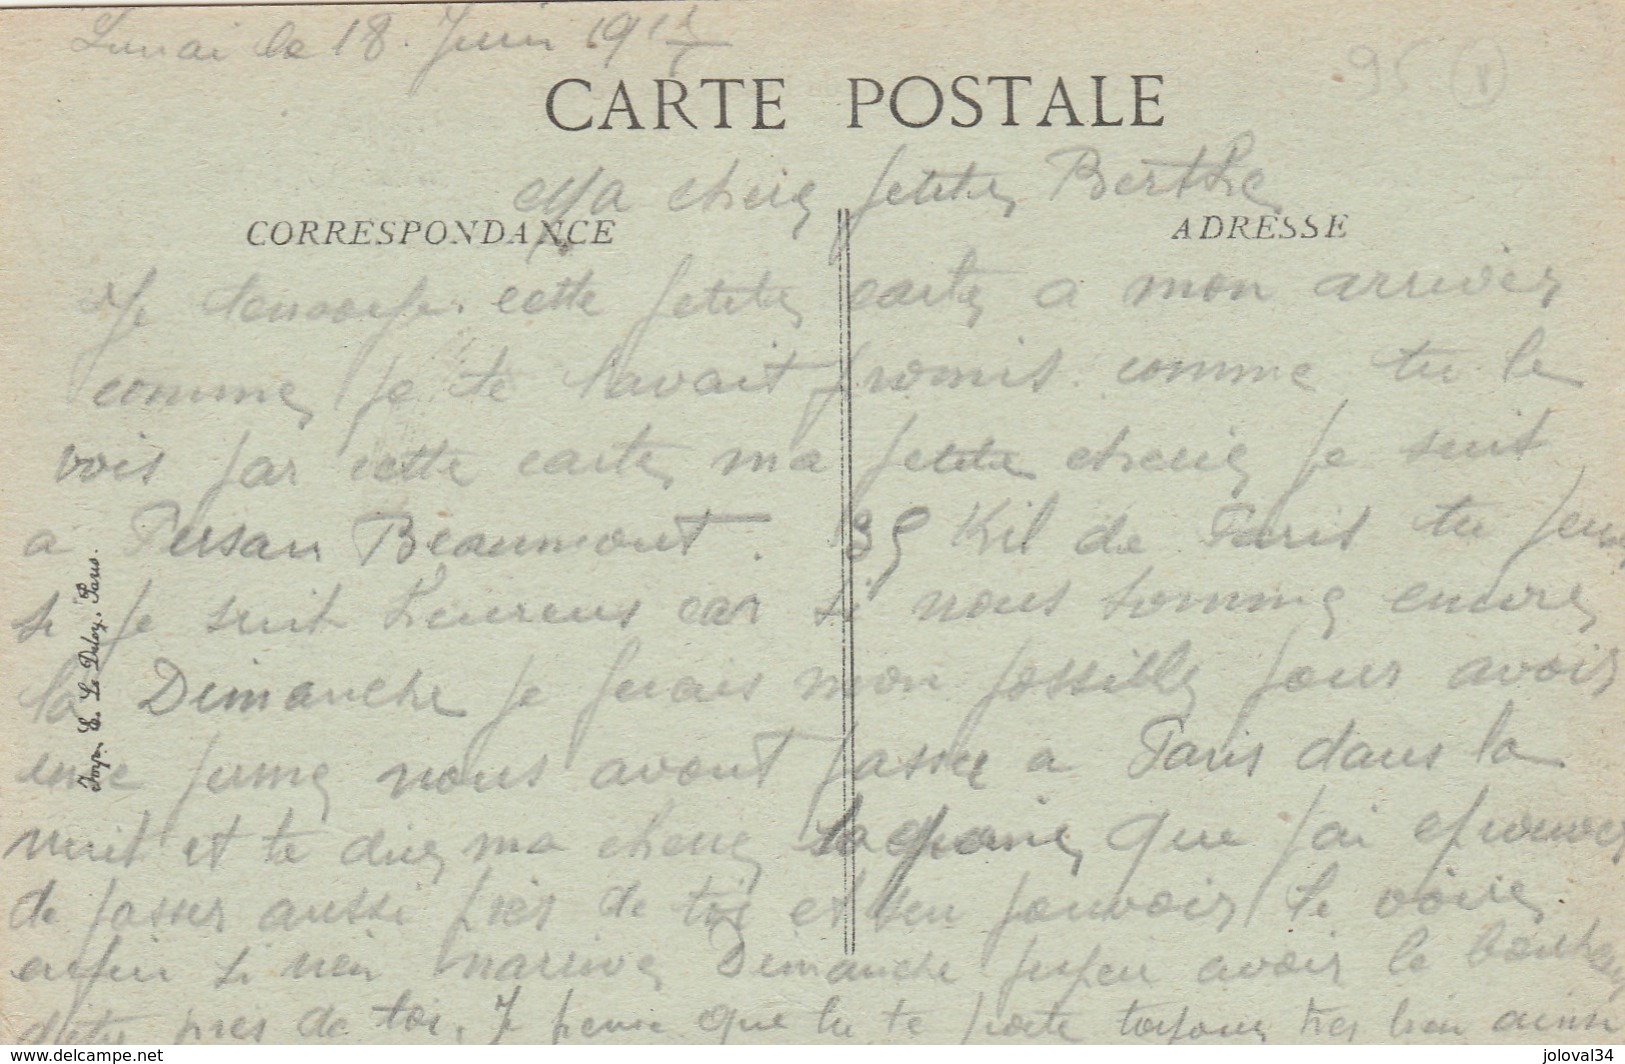 Lundi le 18 Juin 1917
95
CARTE POSTALE
Ma cherie petite Berthe
CORRESPONDANCE
ADRESSE
Je tenvoye cette petite carte a mon arriver
comme je te lavait promis comme tu le
vois par cette carte ma petite cherie je suit
a Persan Beaumont. 35 Kil de Paris tu pense
si je suit heureus car si nous somme encore
la Dimanche je ferais mon possible pour avoir
une perme nous avont passer a Paris dans la
nuit et te dire ma cherie la peine que jai eprouver
de passer aussi près de toi et sen pouvoir te voire
enfin si rien narrive Dimanche avoir le bonheur
detre pres de toi. Je pense que tu te porte toujours tres bien ainsi
Imp. E. Le Deley, Paris.
www.delcampe.net
joloval34